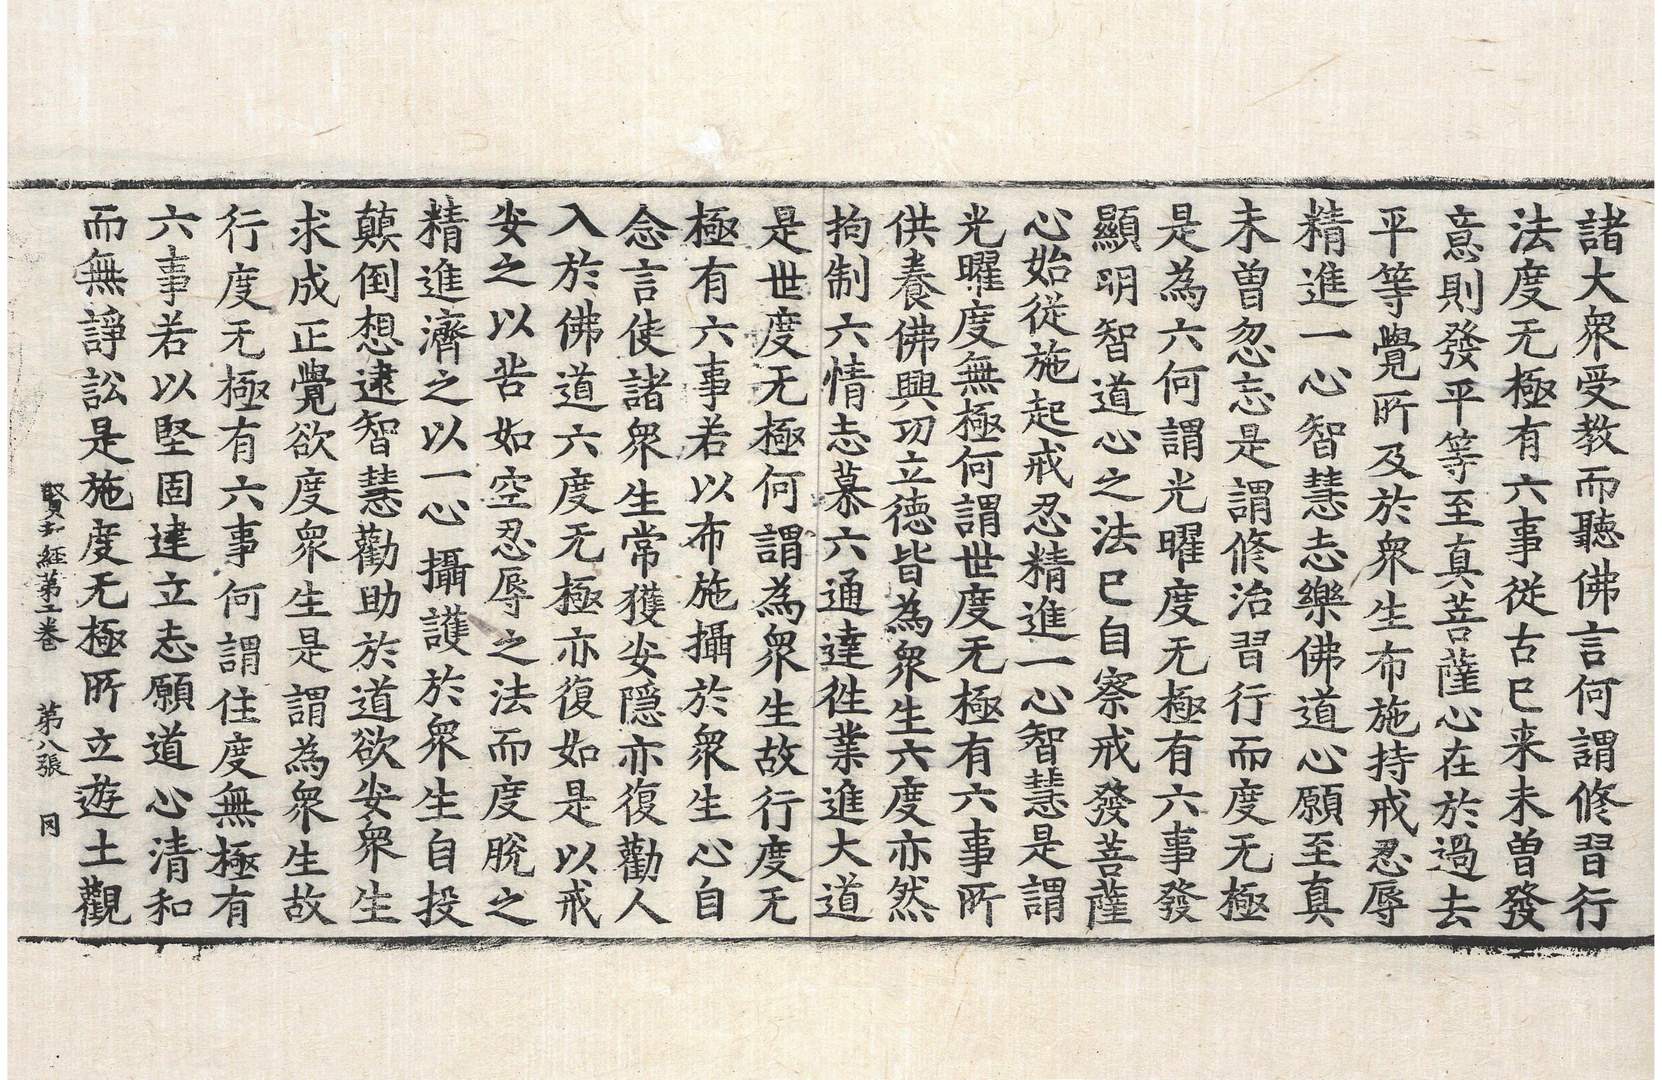 諸大衆受教而聽佛言何謂修習行
法度无極有六事從古已来未曽發
意則發平等至真菩薩心在於過去
平等覺所及於衆生布施持戒忍辱
精進一心智慧志樂佛道心願至真
未曽忽忘是謂修治習行而度无極
是為六何謂光曜度无極有六事發
顯明智道心之法已自察戒發菩薩
心始從施起戒忍精進一心智慧是謂
光曜度無極何謂世度无極有六事所
供養佛興功立德皆為衆生六度亦然
拘制六情志慕六通達徃業進大道
是世度无極何謂為衆生故行度无
極有六事若以布施攝於衆生心自
念言使諸衆生常獲安隱亦復勸人
入於佛道六度无極亦復如是以戒
安之以苦如空忍辱之法而度脫之
精進濟之以一心攝護於衆生自投
顛倒想逮智慧勸助於道欲安衆生
求成正覺欲度衆生是謂為衆生故
行度无極有六事何謂住度無極有
六事若以堅固建立志願道心清和
而無諍訟是施度无極所立遊土觀
賢刼經第二卷 第八張 同